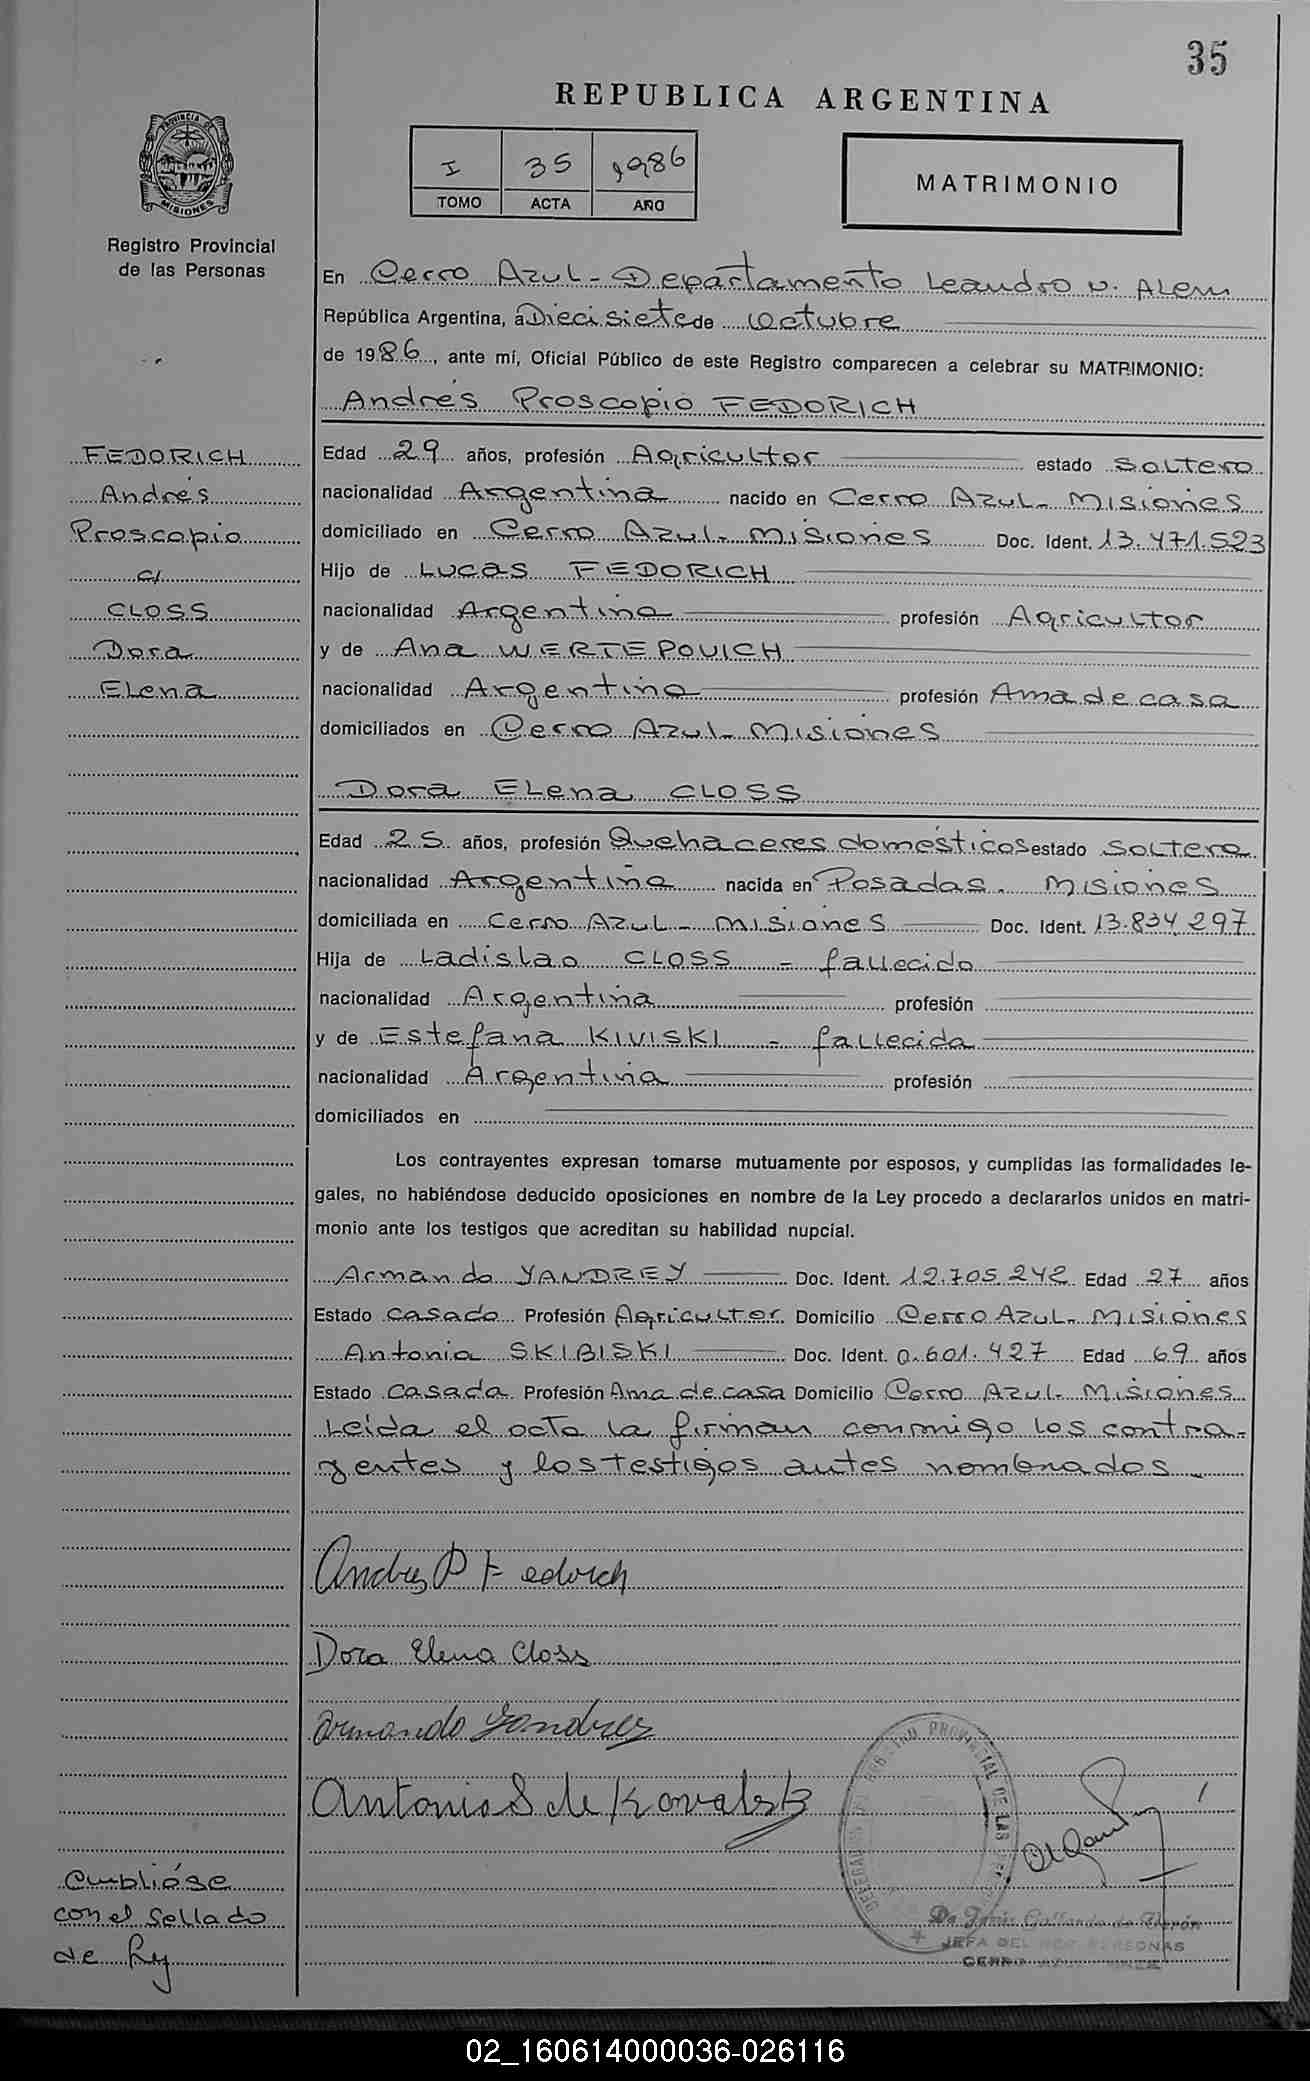 35
REPUBLICA ARGENTINA
I 35 1986
TOMO ACTA AÑO
MATRIMONIO
PROVINCIA DE
MISIONES
Registro Provincial
de las Personas
En Cerro Azul - Departamento Leandro N. Alem
República Argentina, a Diecisiete de Octubre
de 1986, ante mí, Oficial Público de este Registro comparecen a celebrar su MATRIMONIO:
Andrés Proscopio FEDORICH
FEDORICH
Andrés
Proscopio
c/
CLOSS
Dora
Elena
Edad 29 años, profesión Agricultor estado soltero
nacionalidad Argentina nacido en Cerro Azul - Misiones
domiciliado en Cerro Azul - Misiones Doc. Ident. 13.471.523
Hijo de Lucas FEDORICH
nacionalidad Argentina profesión Agricultor
y de Ana WERTEPOVICH
nacionalidad Argentina profesión Ama de casa
domiciliados en Cerro Azul - Misiones
Dora Elena CLOSS
Edad 25 años, profesión Quehaceres domésticos estado soltera
nacionalidad Argentina nacida en Posadas. Misiones
domiciliada en Cerro Azul - Misiones Doc. Ident. 13.834.297
Hija de Ladislao CLOSS - fallecido
nacionalidad Argentina profesión
y de Estefana KIVISKI - fallecida
nacionalidad Argentina profesión
domiciliados en
Los contrayentes expresan tomarse mutuamente por esposos, y cumplidas las formalidades le-
gales, no habiéndose deducido oposiciones en nombre de la Ley procedo a declararlos unidos en matri-
monio ante los testigos que acreditan su habilidad nupcial.
Armando YANDREY Doc. Ident. 12.705.242 Edad 27 años
Estado casado Profesión Agricultor Domicilio Cerro Azul - Misiones
Antonia SKIBISKI Doc. Ident. 0.601.427 Edad 69 años
Estado casada Profesión Ama de casa Domicilio Cerro Azul - Misiones
Leída el acta la firman conmigo los contra-
yentes y los testigos antes nombrados
Andres P Fedorich
Dora Elena Closs
Armando
Antonia S de
REGISTRO PROVINCIAL DE LAS
JEFA DEL REG. PERSONAS
CERRO
Cumplióse
con el sellado
de ley
02_160614000036-026116